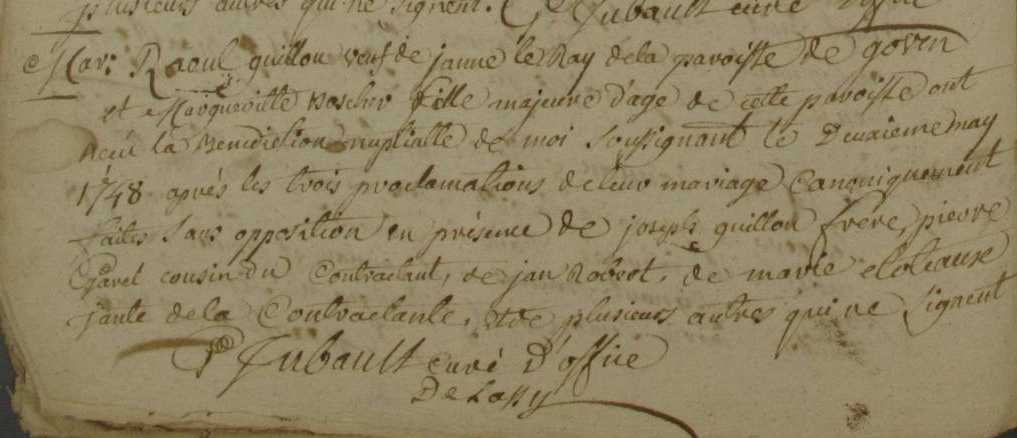 plusieurs autres qui ne signent. Jubault curé d'office
Mar: Raoul guillou veuf de janne le Ray de la paroisse de goven
et Margueritte Boscher fille majeure d'age de cette paroisse ont
recu la Benediction nuptialle de moi soussignant le Deuxieme may
1748 aprés les trois proclamations de leur mariage Canoniquement
faites sans opposition en présence de joseph guillou frere, pierre
Garel cousin du Contractant, de jan Robert, de marie
tante de la Contractante, et de plusieurs autres qui ne signent
Jubault curé D'office
De Lassy